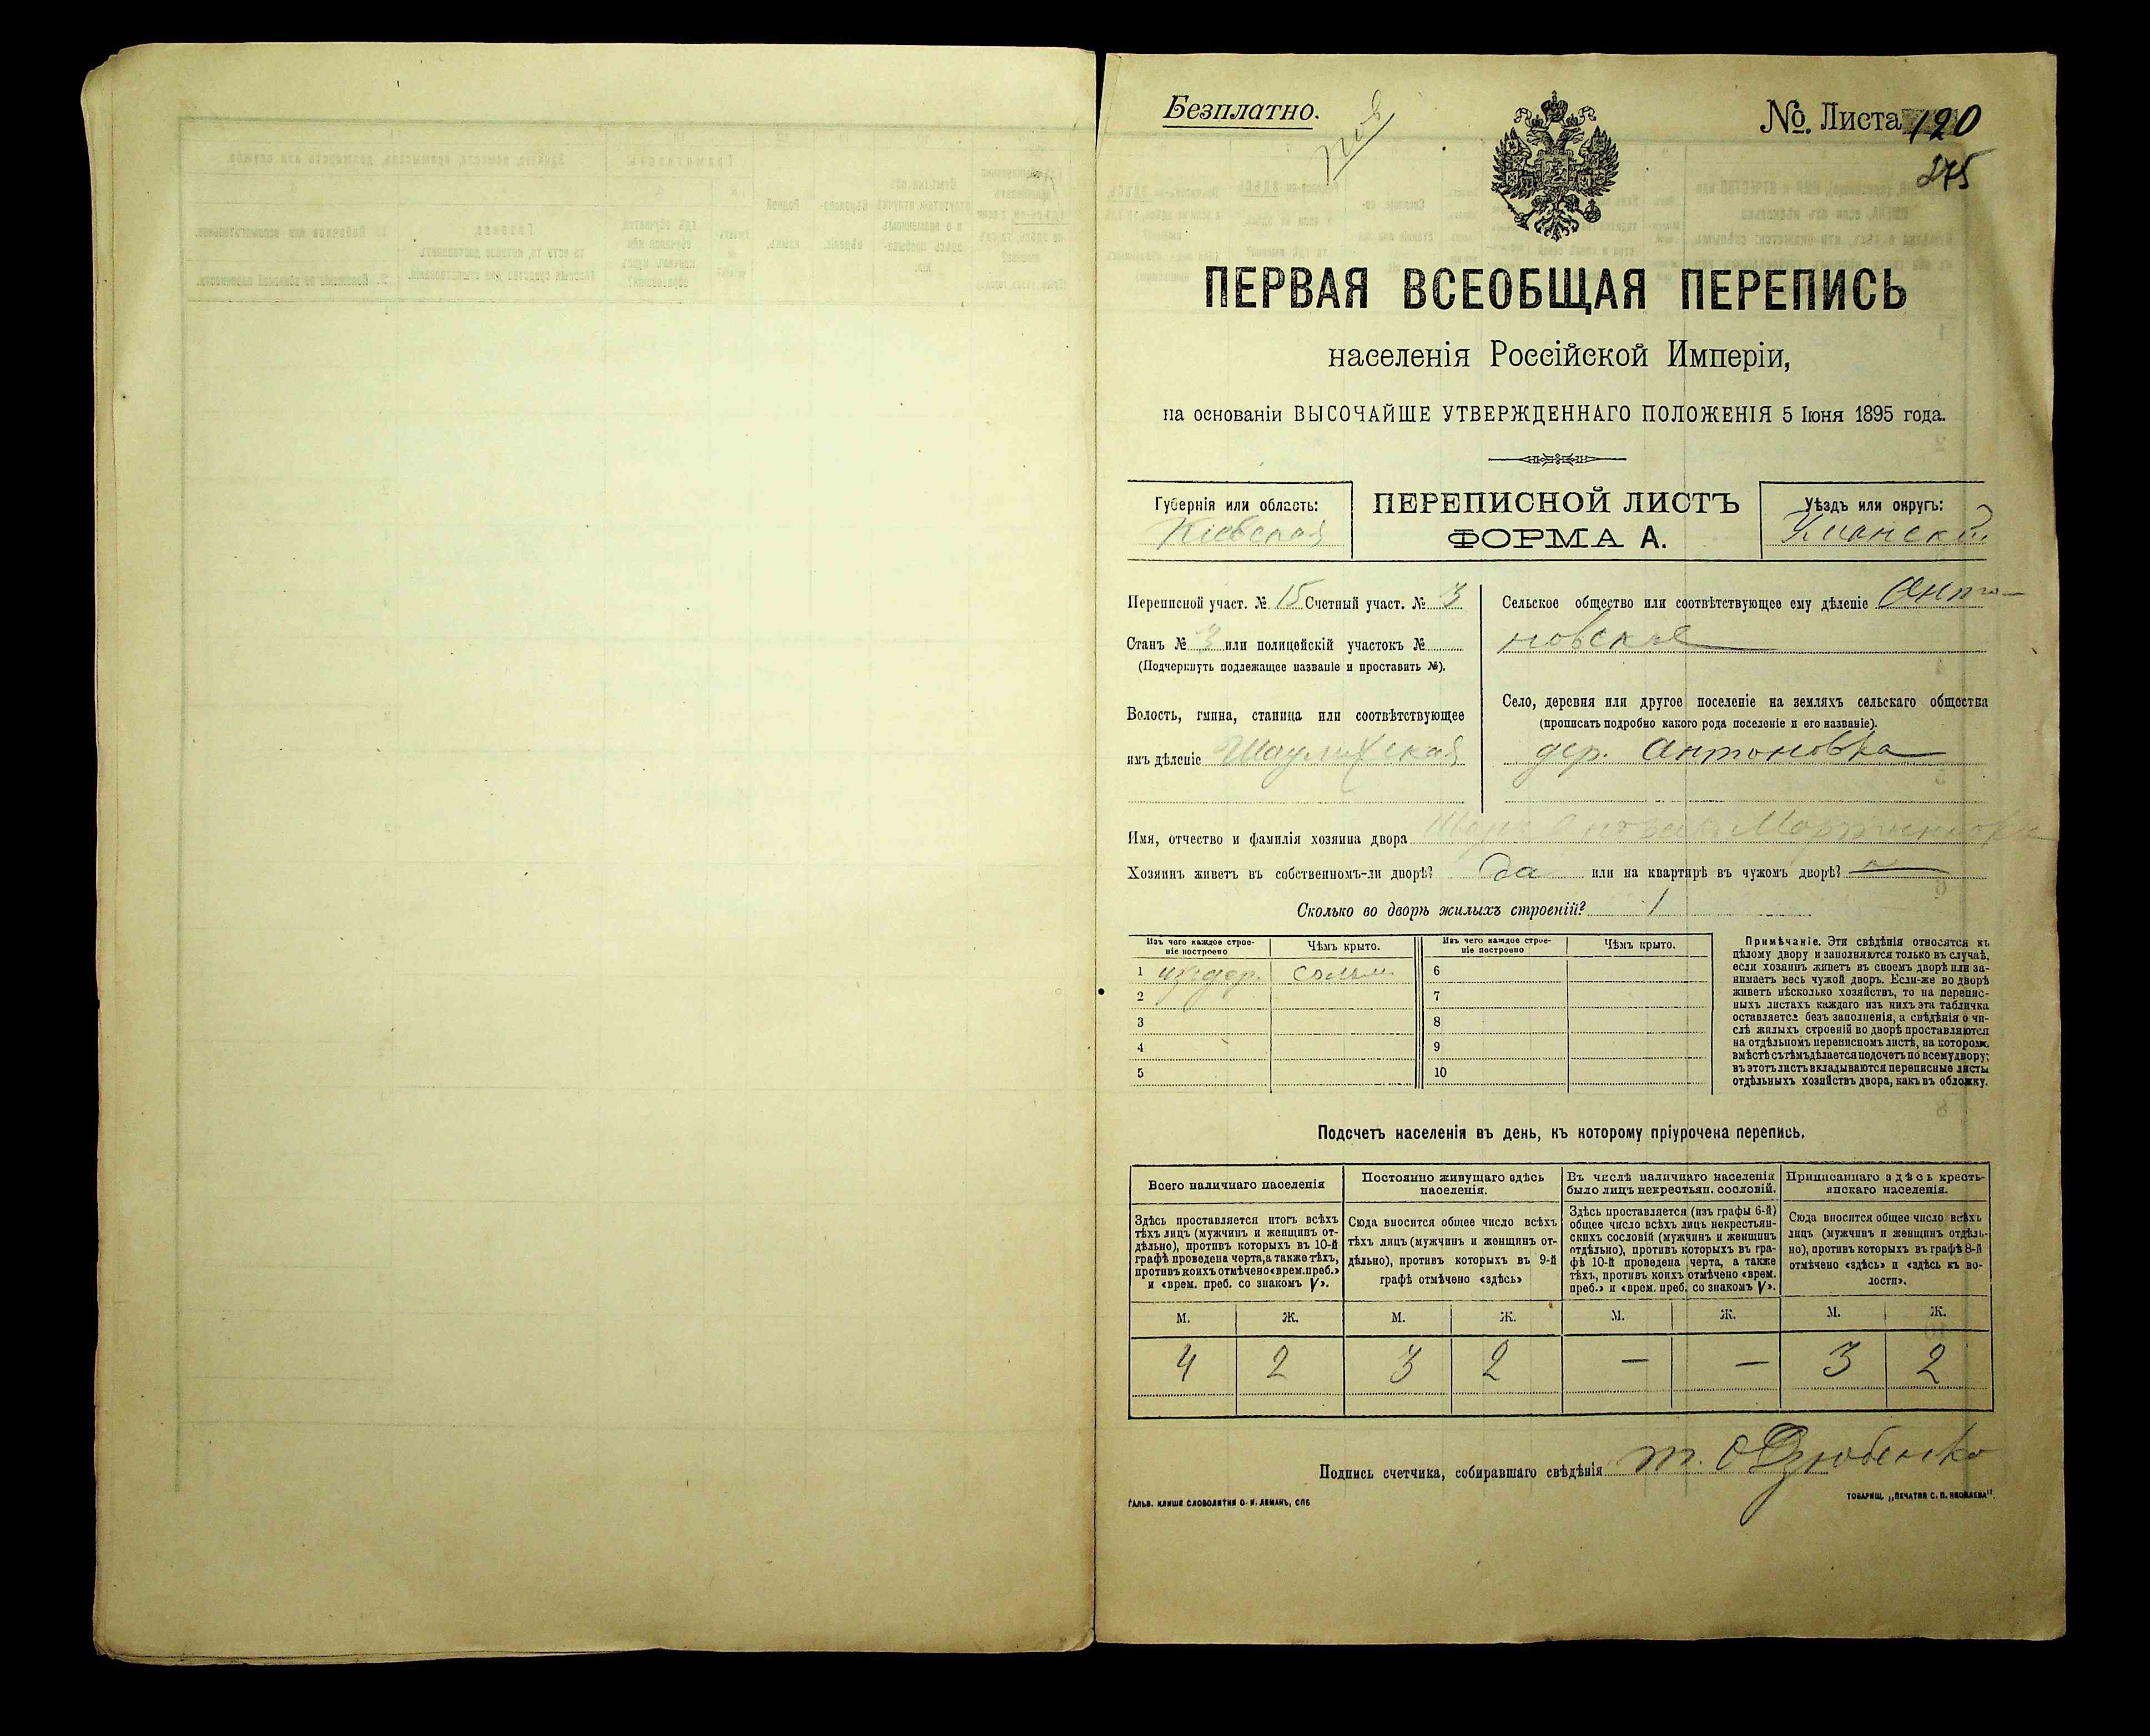 Безплатно.
№ Листа 120
275
ПЕРВАЯ ВСЕОБЩАЯ ПЕРЕПИСЬ
населенія Россійской Имперіи,
на основаніи ВЫСОЧАЙШЕ УТВЕРЖДЕННАГО ПОЛОЖЕНІЯ 5 Іюня 1895 года.
Губернія или область:
Кіевская
ПЕРЕПИСНОЙ ЛИСТЪ
ФОРМА А.
Уѣздъ или округъ:
Переписной участ. № 15 Счетный участ. № 3
Станъ № 3 или полицейскій участокъ №
(Подчеркнуть подлежащее названіе и проставить №).
Волость, гмина, станица или соотвѣтствующее
имъ дѣленіе
Сельское общество или соотвѣтствующее ему дѣленіе Анто-
новское
Село, деревня или другое поселеніе на земляхъ сельскаго общества
(прописать подробно какого рода поселеніе и его названіе).
дер. Антоновка
Имя, отчество и фамилія хозяина двора
Хозяинъ живетъ въ собственномъ-ли дворѣ? Да или на квартирѣ въ чужомъ дворѣ? —
Сколько во дворѣ жилыхъ строеній? 1
Изъ чего каждое строе-
ніе построено
Чѣмъ крыто.
Изъ чего каждое строе-
ніе построено
Чѣмъ крыто.
1 изъ дер. солом.
2
3
4
5
6
7
8
9
10
Примѣчаніе. Эти свѣдѣнія относятся къ
цѣлому двору и заполняются только въ случаѣ,
если хозяинъ живетъ въ своемъ дворѣ или за-
нимаетъ весь чужой дворъ. Если-же во дворѣ
живетъ нѣсколько хозяйствъ, то на перепис-
ныхъ листахъ каждаго изъ нихъ эта табличка
оставляется безъ заполненія, а свѣдѣнія о чи-
слѣ жилыхъ строеній во дворѣ проставляются
на отдѣльномъ переписномъ листѣ, на которомъ
вмѣстѣ съ тѣмъ дѣлается подсчетъ по всему двору;
въ этотъ листъ вкладываются переписные листы
отдѣльныхъ хозяйствъ двора, какъ въ обложку.
Подсчетъ населенія въ день, къ которому пріурочена перепись.
Всего наличнаго населенія
Здѣсь проставляется итогъ всѣхъ
тѣхъ лицъ (мужчинъ и женщинъ от-
дѣльно), противъ которыхъ въ 10-й
графѣ проведена черта, а также тѣхъ,
противъ коихъ отмѣчено «врем. преб.»
и «врем. преб. со знакомъ V».
Постоянно живущаго здѣсь
населенія.
Сюда вносится общее число всѣхъ
тѣхъ лицъ (мужчинъ и женщинъ от-
дѣльно), противъ которыхъ въ 9-й
графѣ отмѣчено «здѣсь»
Въ числѣ наличнаго населенія
было лицъ некрестьян. сословій.
Здѣсь проставляется (изъ графы 6-й)
общее число всѣхъ лицъ некрестьян-
скихъ сословій (мужчинъ и женщинъ
отдѣльно), противъ которыхъ въ гра-
фѣ 10-й проведена черта, а также
тѣхъ, противъ коихъ отмѣчено «врем.
преб.» и «врем. преб. со знакомъ V».
Приписаннаго здѣсь кресть-
янскаго населенія.
Сюда вносится общее число всѣхъ
лицъ (мужчинъ и женщинъ отдѣль-
но), противъ которыхъ въ графѣ 8-й
отмѣчено «здѣсь» и «здѣсь къ во-
лости».
М. Ж. М. Ж. М. Ж. М. Ж.
4 2 3 2 — — 3 2
Подпись счетчика, собиравшаго свѣдѣнія
ГАЛЬВ. КЛИШЕ СЛОВОЛИТНИ О. И. ЛЕМАНЪ, СПБ
ТОВАРИЩ. „ПЕЧАТНЯ С. П. ЯКОВЛЕВА".